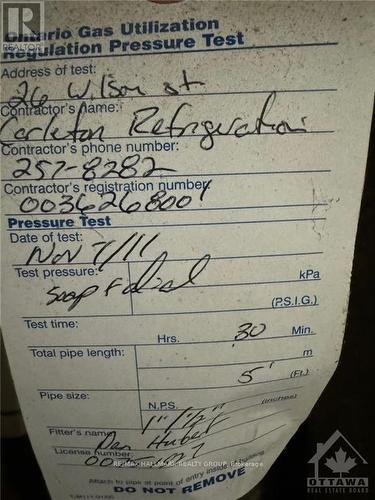 REALTOR
Ontario Gas Utilization
Regulation Pressure Test
Address of test:
26 Wilson st
Contractor's name:
Carleton Refrigeration
Contractor's phone number:
257-8282
Contractor's registration number
Pressure Test
Date of test:
Nov 7/11
Test pressure:
kPa
Soap
(P.S.I.G.)
Test time:
Hrs. 30 Min.
Total pipe length:
m
5' (Ft.)
Pipe size:
N.P.S. 1" 1/2" (inches)
Fitter's name
Dan Hubert
License Number
RE/MAX HALLMARK REALTY GROUP, Brokerage
Attach to pipe at point of entry inside building
DO NOT REMOVE
OTTAWA
REAL ESTATE BOARD